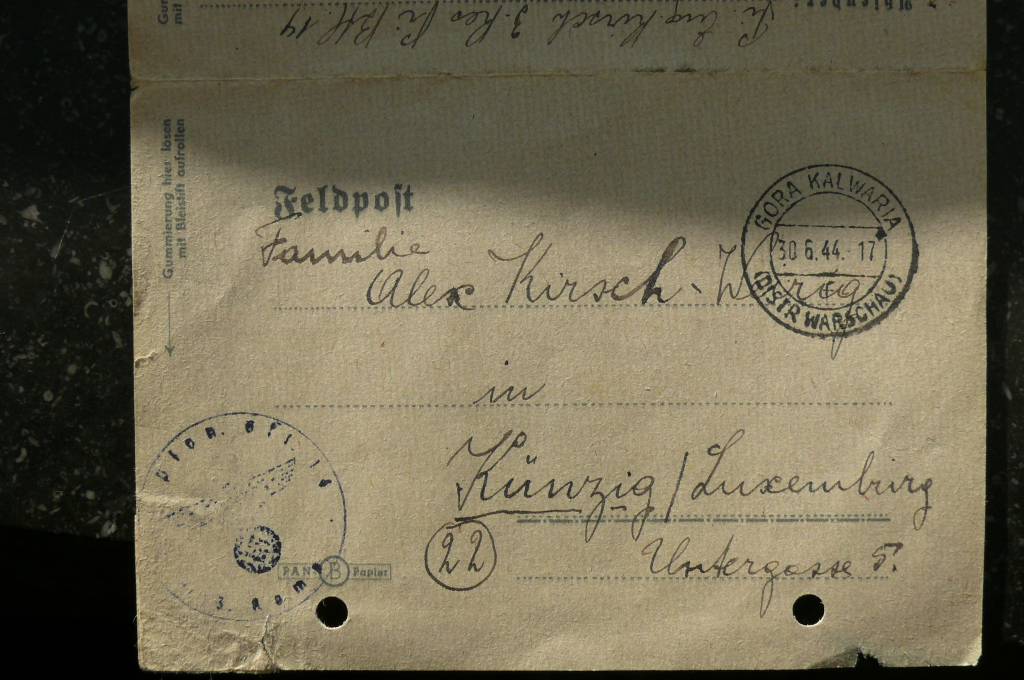 Gummierung hier lösen
mit Bleistift aufrollen
Feldpost
Familie
Alex Kirsch - Werg
GORA KALWARIA
30.6.44.-17
c
(DISTR WARSCHAU)
in
Künzig / Luxemburg
22
Untergasse 5.
Pion. Btl. 14
3. Komp
PAN B Papier